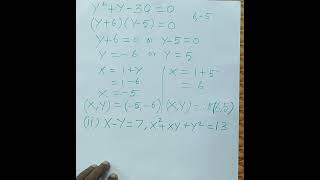 y²+y-30=0
(y+6)(y-5)=0 6,-5
y+6=0 or y-5=0
y=-6 or y=5
x=1+y x=1+5
=1-6 =6
x=-5
(x,y)=(-5,-6) (x,y)=(6,5)
(ii) x-y=7, x²+xy+y²=13